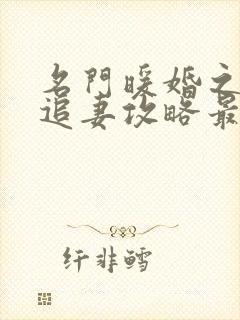 名門暖婚之
追妻攻略最
纤非鳕